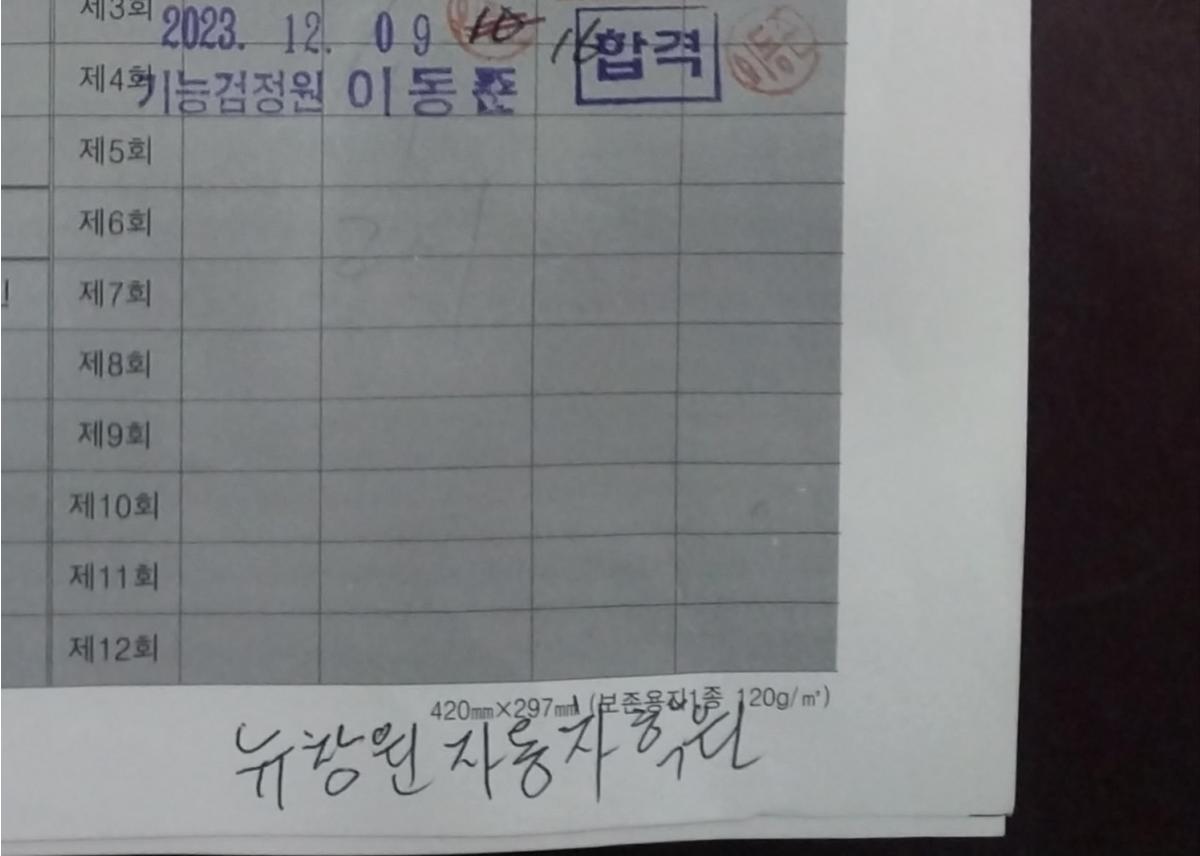 제3회
2023. 12. 09 10 16 합격
제4회 기능검정원 이동준
제5회
제6회
제7회
제8회
제9회
제10회
제11회
제12회
420㎜×297㎜ (보존용지1종 120g/㎡)
뉴창원 자동차학원